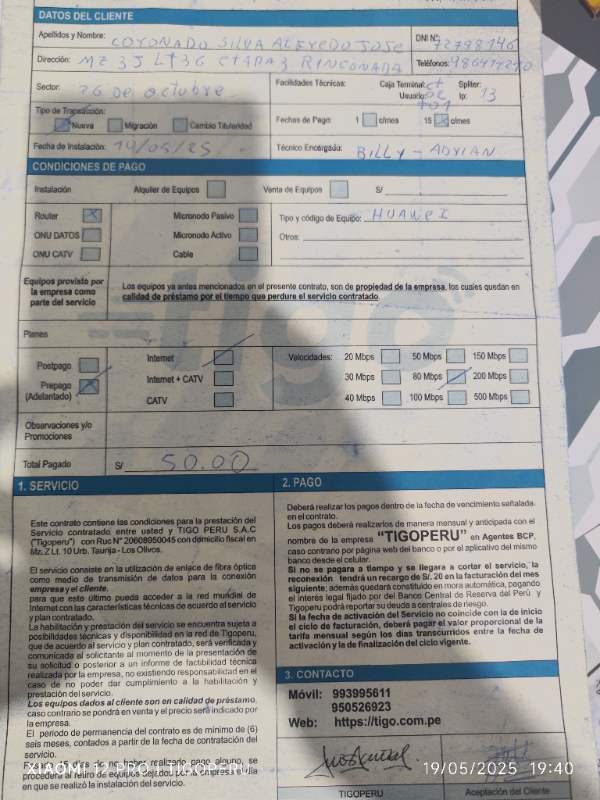 DATOS DEL CLIENTE
Apellidos y Nombre: CORONADO SILVA ALFREDO JOSE DNI N°: 72788146
Dirección: MZ 3J LT 36 ETAPA 3 RINCONADA Teléfonos:
Sector: 26 De octubre Facilidades Técnicas: Caja Terminal: Spliter:
Usuario: Ip: 13
Tipo de Transacción:
Nueva Migración Cambio Titularidad Fechas de Pago: 1 c/mes 15 c/mes
Fecha de Instalación: 19/05/25. Técnico Encargado: BILLY - ADRIAN
CONDICIONES DE PAGO
Instalación Alquiler de Equipos Venta de Equipos S/
Router Micronodo Pasivo Tipo y código de Equipo: HUAWEI
ONU DATOS Micronodo Activo Otros:
ONU CATV Cable
Equipos provisto por
la empresa como
parte del servicio
Los equipos ya antes mencionados en el presente contrato, son de propiedad de la empresa, los cuales quedan en
calidad de préstamo por el tiempo que perdure el servicio contratado.
tigo
Planes
Postpago Internet Velocidades: 20 Mbps 50 Mbps 150 Mbps
Prepago Internet + CATV 30 Mbps 80 Mbps 200 Mbps
(Adelantado) CATV 40 Mbps 100 Mbps 500 Mbps
Observaciones y/o
Promociones
Total Pagado S/ 50.00
1. SERVICIO
Este contrato contiene las condiciones para la prestación del
Servicio contratado entre usted y TIGO PERU S.A.C
("Tigoperu") con Ruc N° 20608950045 con domicilio fiscal en
Mz. Z Lt. 10 Urb. Taurija - Los Olivos.
El servicio consiste en la utilización de enlace de fibra óptica
como medio de transmisión de datos para la conexión
empresa y el cliente.
para que este último pueda acceder a la red mundial de
Internet con las características técnicas de acuerdo al servicio
y plan contratado.
La habilitación y prestación del servicio se encuentra sujeta a
posibilidades técnicas y disponibilidad en la red de Tigoperu,
que de acuerdo al servicio y plan contratado, será verificada y
comunicada al solicitante al momento de la presentación de
su solicitud o posterior a un informe de factibilidad técnica
realizada por la empresa, no existiendo responsabilidad en el
caso de no poder dar cumplimiento a la habilitación y
prestación del servicio.
Los equipos dados al cliente son en calidad de préstamo,
caso contrario se pondrá en venta y el precio será indicado por
la empresa.
El periodo de permanencia del contrato es de minimo de (6)
seis meses, contados a partir de la fecha de contratación del
servicio.
procederá al retiro de equipos dejados por la empresa
en que se realizó la instalación del servicio.
2. PAGO
Deberá realizar los pagos dentro de la fecha de vencimiento señalada
en el contrato.
Los pagos deberá realizarlos de manera mensual y anticipada con el
nombre de la empresa "TIGOPERU" en Agentes BCP,
caso contrario por página web del banco o por el aplicativo del mismo
banco desde el celular.
Si no se pagara a tiempo y se llegara a cortar el servicio, la
reconexión tendrá un recargo de S/. 20 en la facturación del mes
siguiente; además quedará constituido en mora automática, pagando
el interés legal fijado por del Banco Central de Reserva del Perú y
Tigoperú podrá reportar su deuda a centrales de riesgo.
Si la fecha de activación del Servicio no coincide con la de inicio
el ciclo de facturación, deberá pagar el valor proporcional de la
tarifa mensual según los días transcurridos entre la fecha de
activación y la de finalización del ciclo vigente.
3. CONTACTO
Móvil: 993995611
950526923
Web: https://tigo.com.pe
TIGOPERU Aceptación del Cliente
XIAOMI 12 PRO | TIGOPERU
19/05/2025 19:40